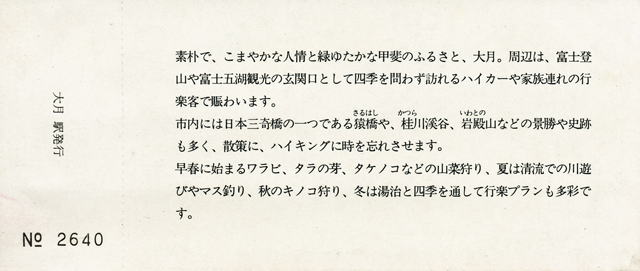 素朴で、こまやかな人情と緑ゆたかな甲斐のふるさと、大月。周辺は、富士登
山や富士五湖観光の玄関口として四季を問わず訪れるハイカーや家族連れの行
楽客で賑わいます。
さるはし かつら いわとの
市内には日本三奇橋の一つである猿橋や、桂川渓谷、岩殿山などの景勝や史跡
も多く、散策に、ハイキングに時を忘れさせます。
早春に始まるワラビ、タラの芽、タケノコなどの山菜狩り、夏は清流での川遊
びやマス釣り、秋のキノコ狩り、冬は湯治と四季を通して行楽プランも多彩で
す。
大月 駅発行
№ 2640